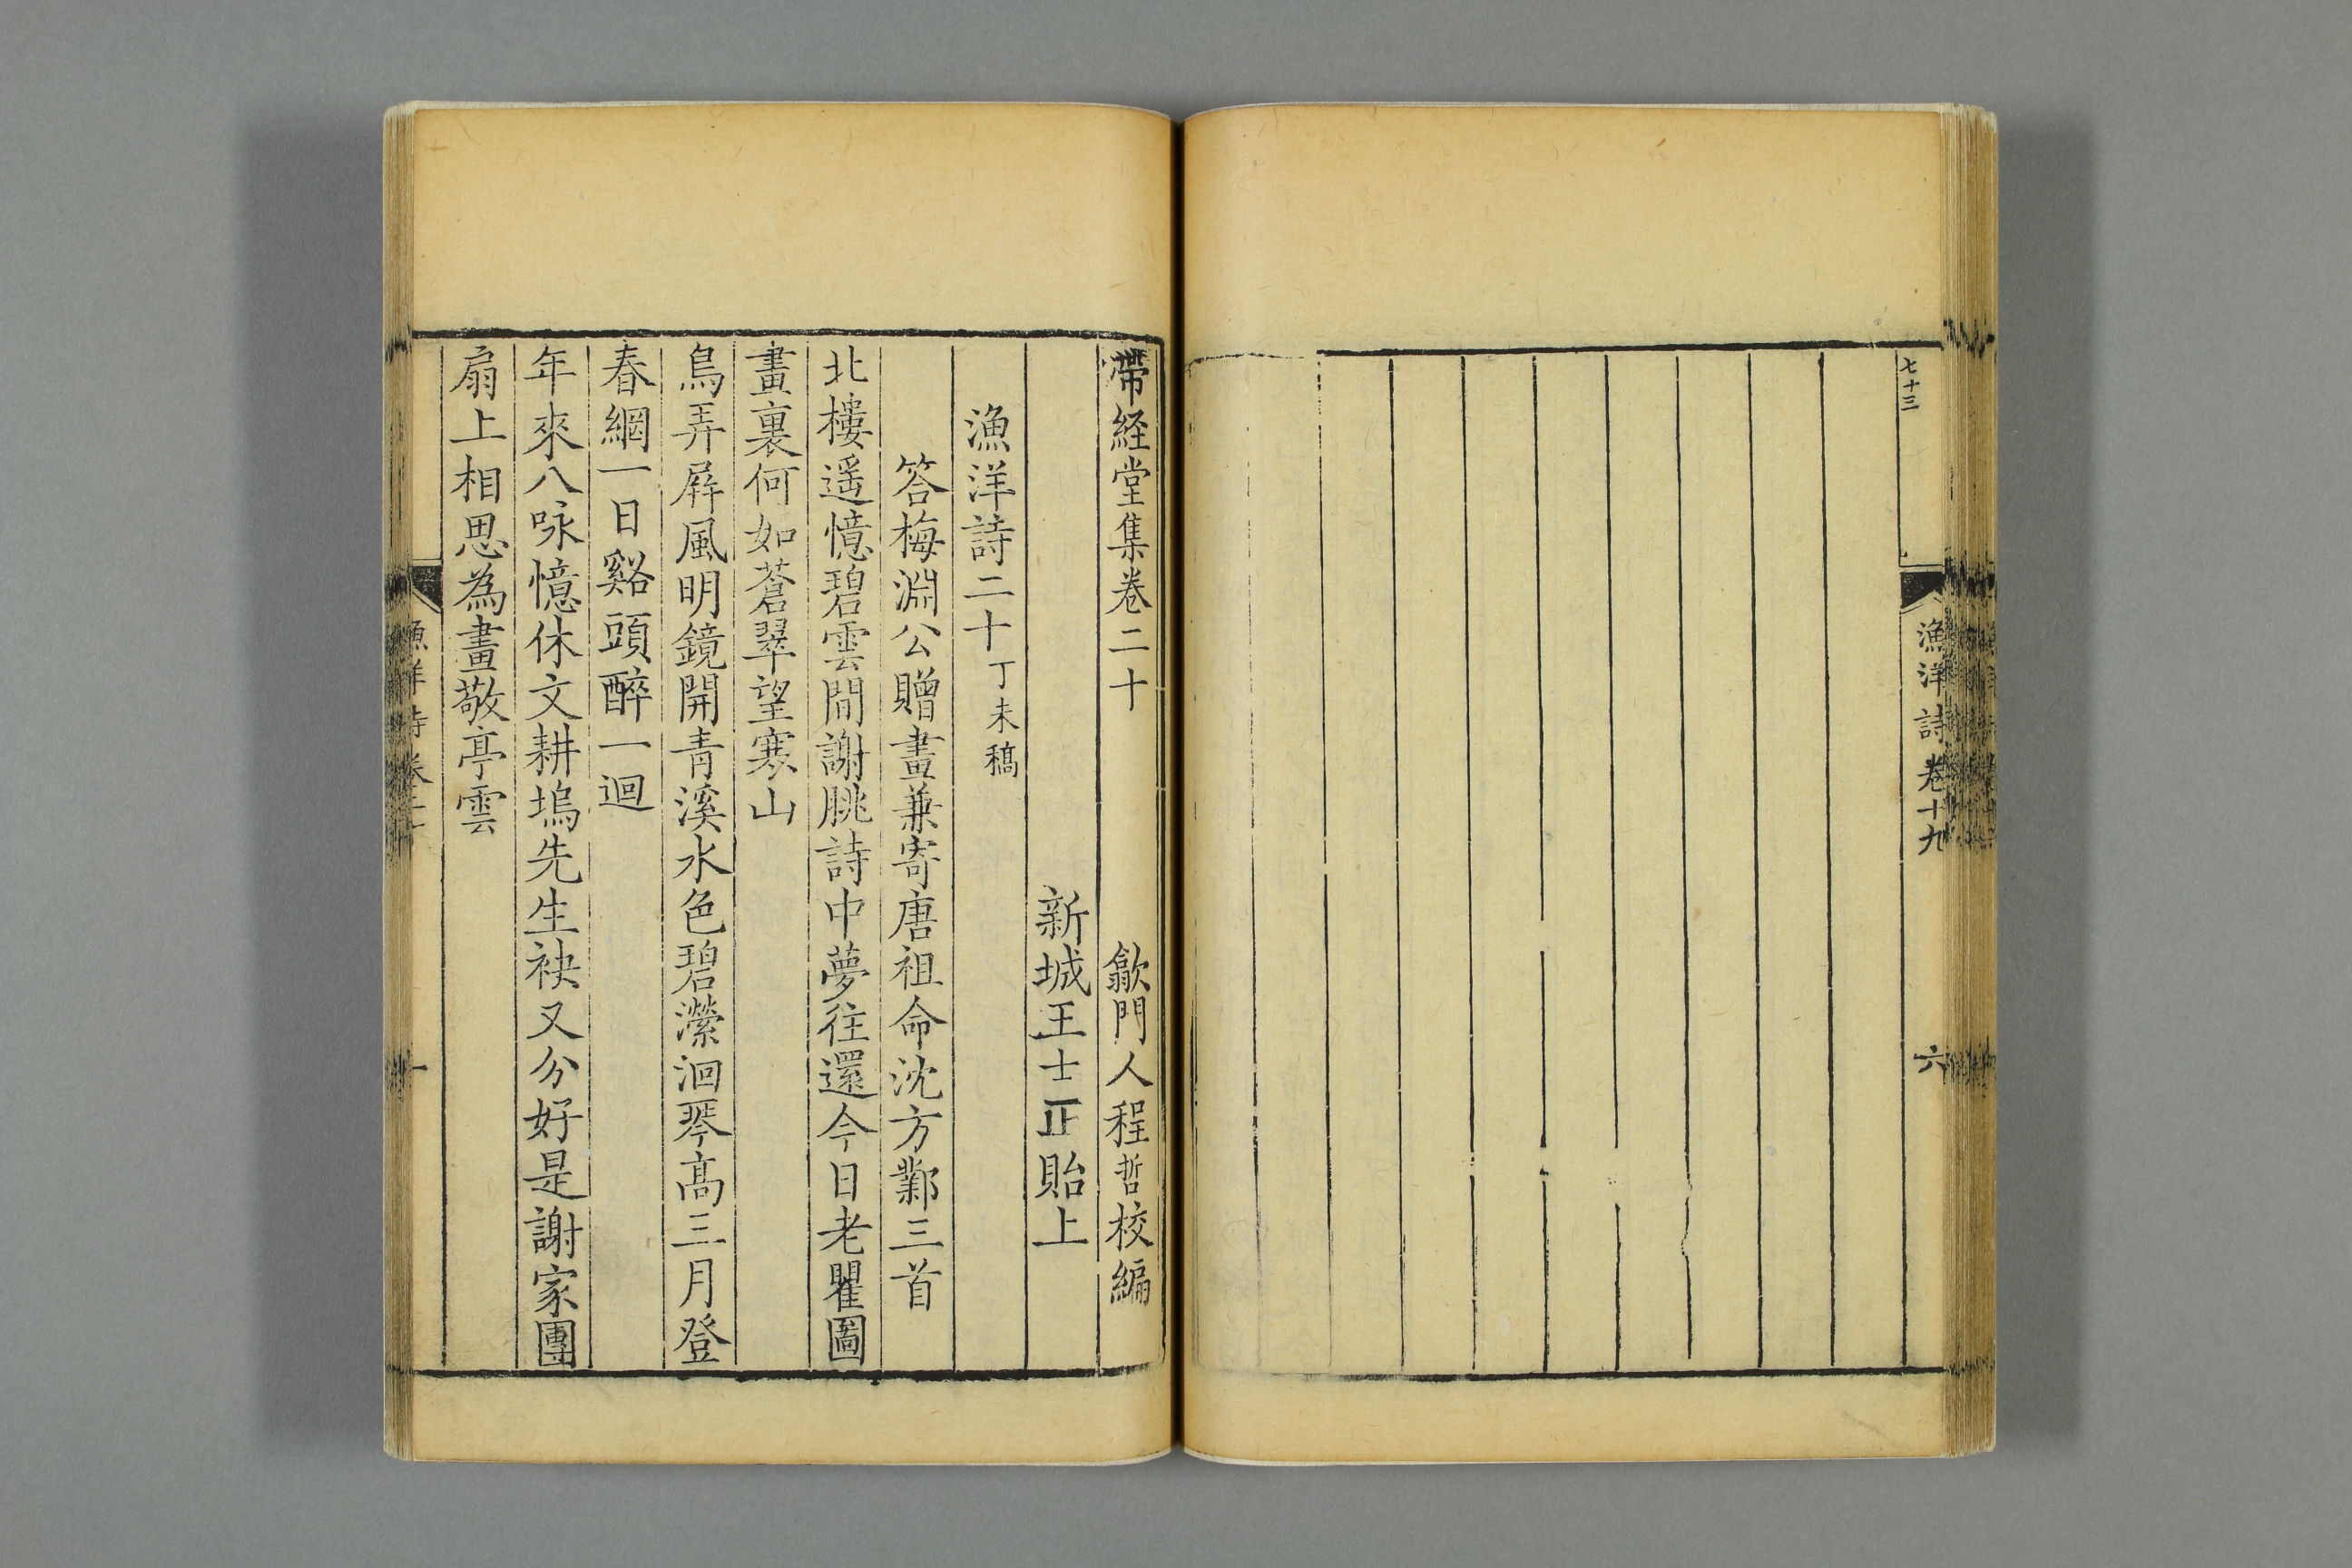 七十三
漁洋詩卷十九
六
帶經堂集卷二十　歙門人程哲校編
新城王士正貽上
漁洋詩二十丁未稿
答梅淵公贈畫兼寄唐祖命沈方鄴三首
北樓遥憶碧雲間謝朓詩中夢往還今日老瞿圖
畫裏何如蒼翠望寒山
鳥弄屛風明鏡開青溪水色碧瀠洄琴高三月登
春網一日谿頭醉一迴
年來八咏憶休文耕塢先生袂又分好是謝家團
扇上相思為畫敬亭雲
漁洋詩卷二十
一